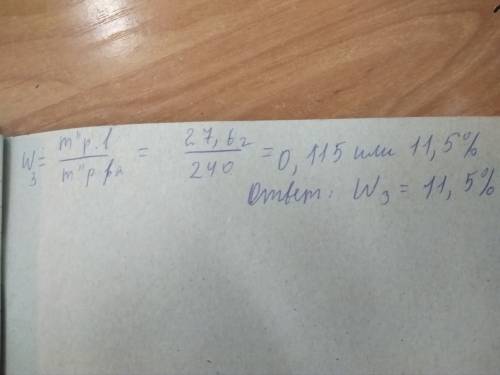 W₃ = m''р.в / m''р-ра = 27,6г / 240 = 0,115 или 11,5%
Ответ: W₃ = 11,5%